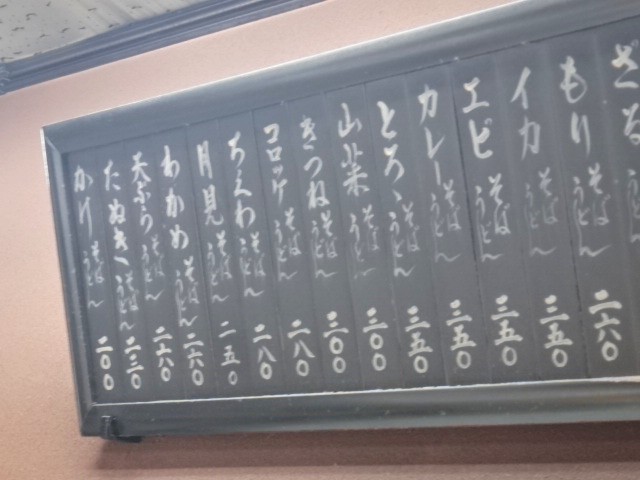 ざる
もり そば うどん 二六〇
イカ そば うどん 三五〇
エビ そば うどん 三五〇
カレー そば うどん 三五〇
とろゝ そば うどん 三五〇
山菜 そば うどん 三〇〇
きつね そば うどん 三〇〇
コロッケ そば うどん 二八〇
ちくわ そば うどん 二八〇
月見 そば うどん 二五〇
わかめ そば うどん 二六〇
天ぷら そば うどん 二六〇
たぬき そば うどん 二三〇
かけ そば うどん 二〇〇